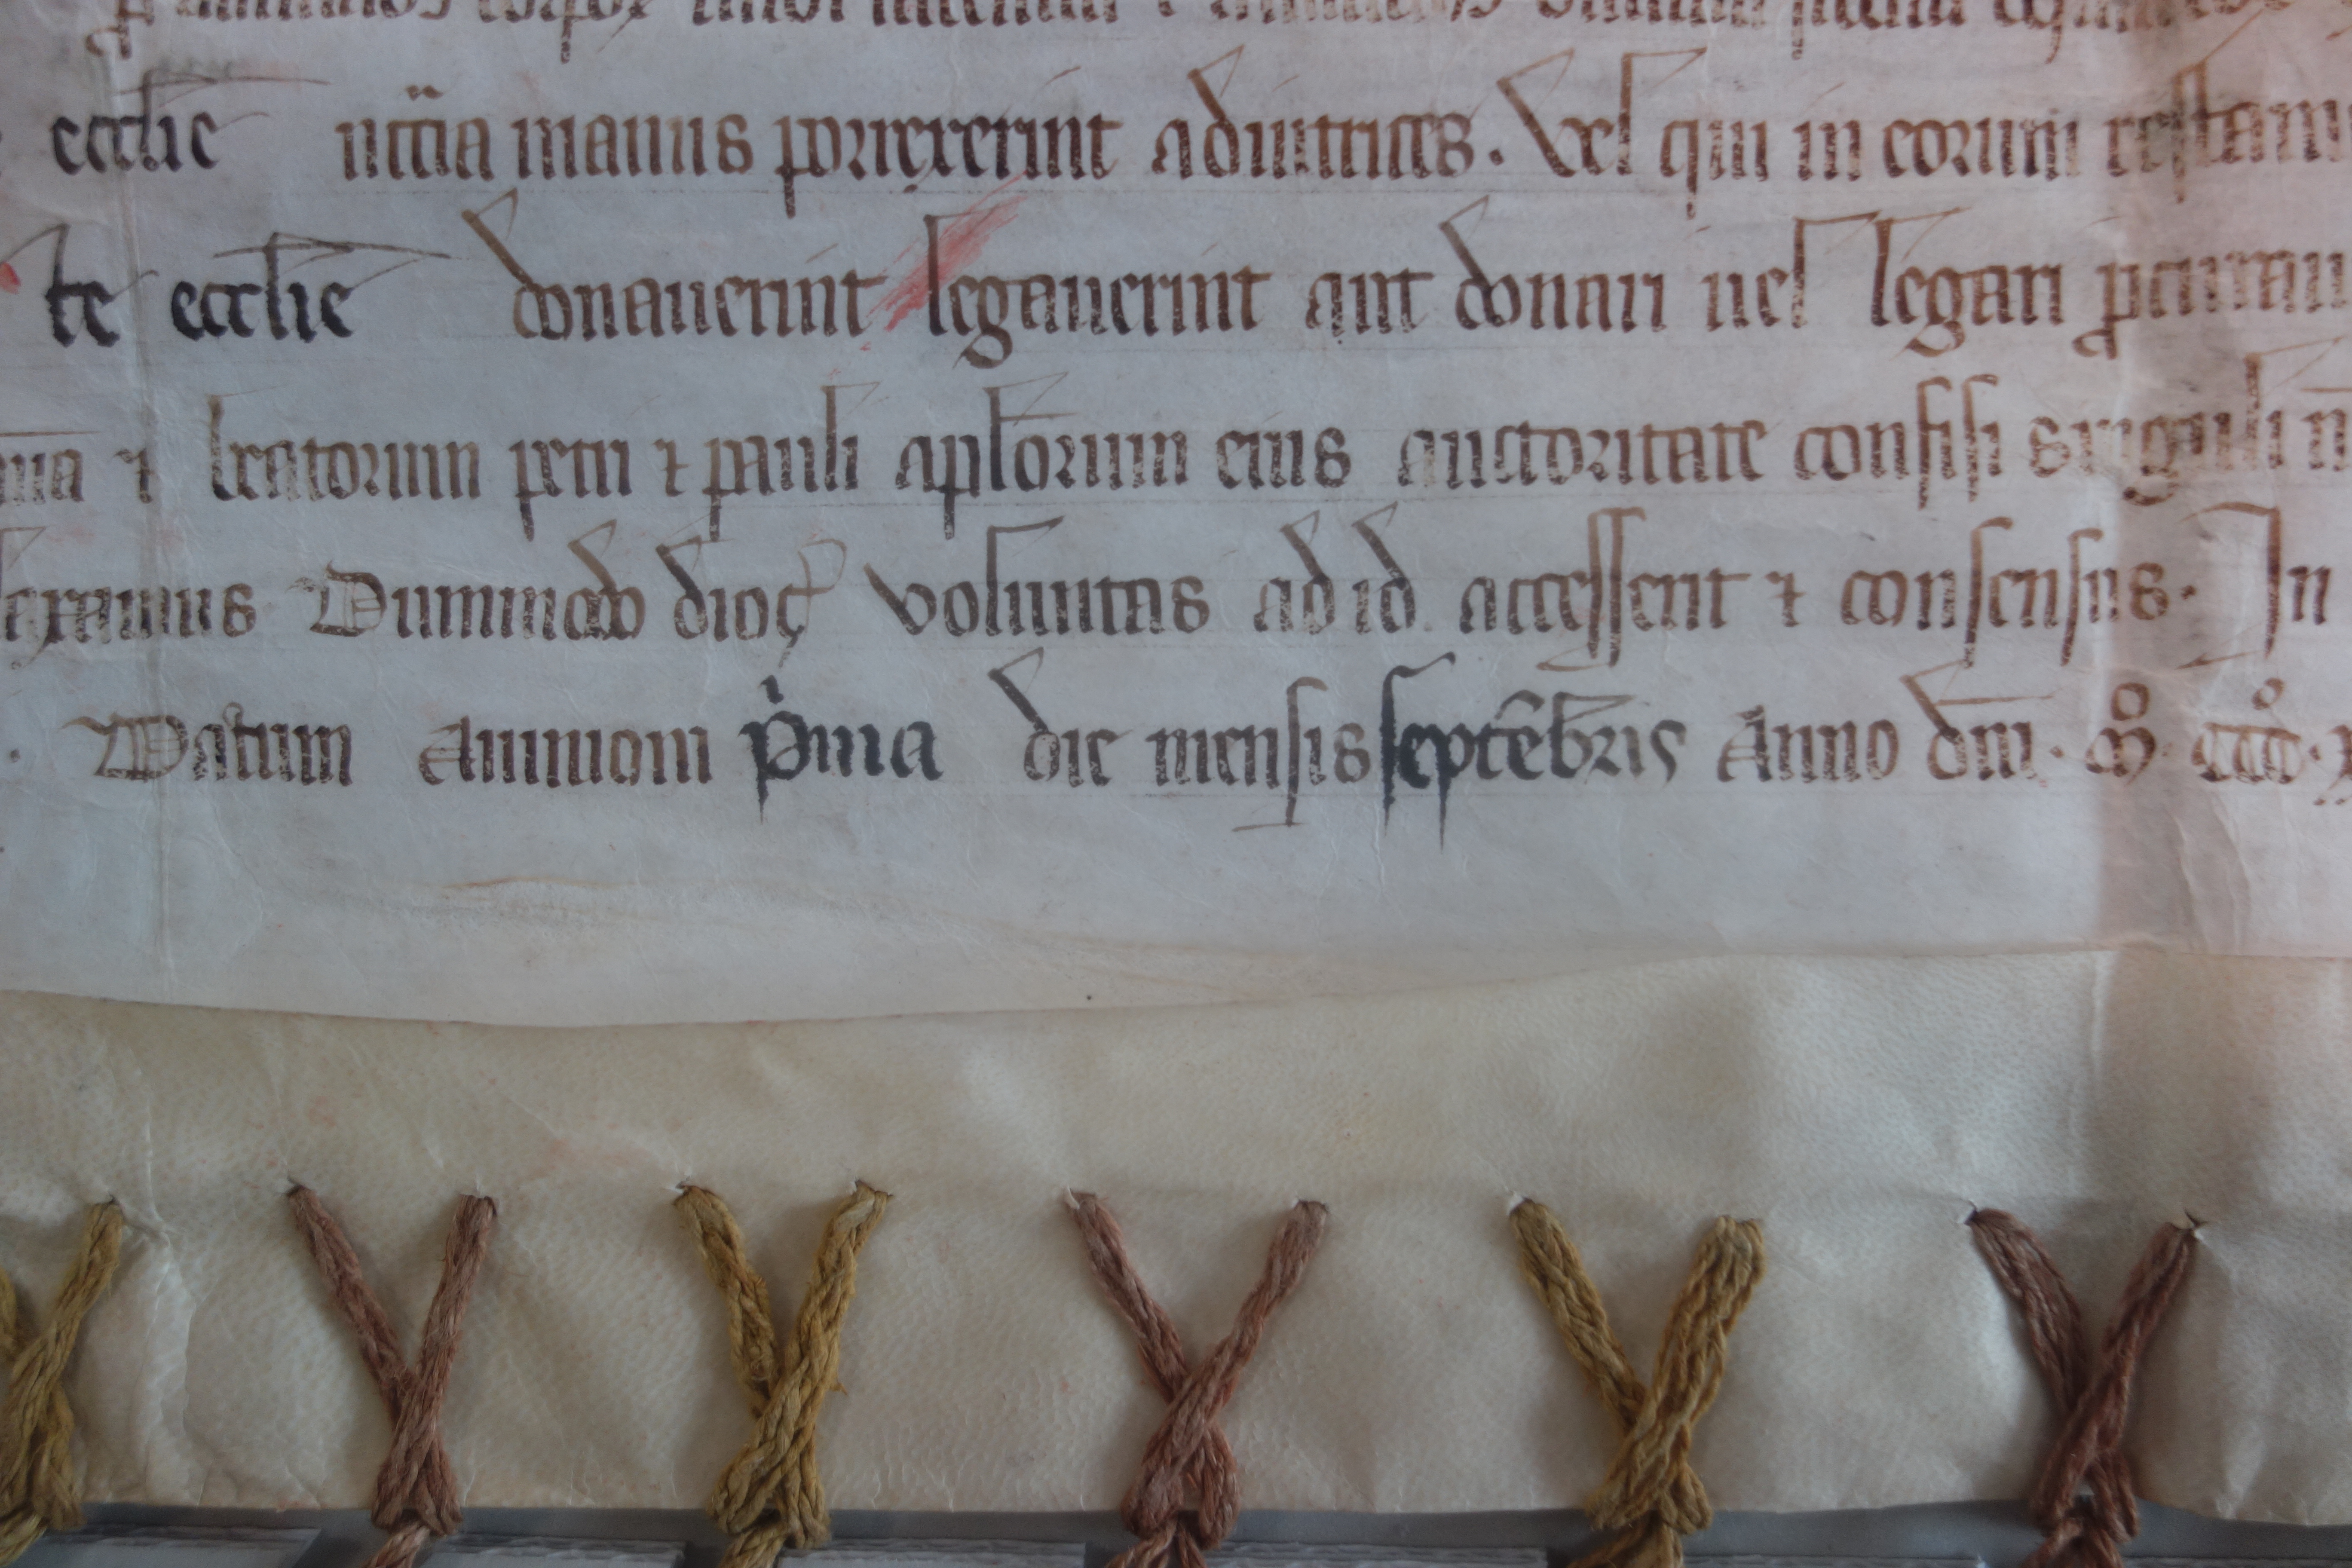 eccl̄ie nc̄c̄ia manus porrexerint adiutrices. Vel qui in eorum testam
te eccl̄ie donauerint legauerint aut donari uel legari ꝓcurau
beatorum petri ⁊ pauli apl̄orum eius auctoritate confisi singuli
laxamus Dummodo dioc̄ voluntas ad id accesserit ⁊ consensus. In
Datum Auinioni p̄ma die mensis septēbris Anno dn̄i. mͦ. cccͦ.